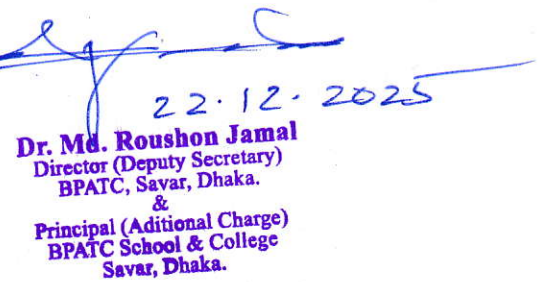 22.12.2025
Dr. Md. Roushon Jamal
Director (Deputy Secretary)
BPATC, Savar, Dhaka.
&
Principal (Aditional Charge)
BPATC School & College
Savar, Dhaka.